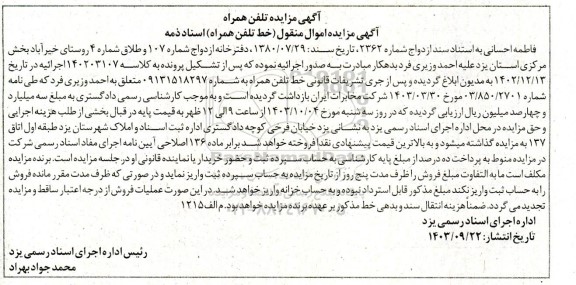 آگهی مزایده تلفن همراه
آگهی مزایده اموال منقول (خط تلفن همراه) اسناد ذمه
فاطمه احسانی به استناد سند ازدواج شماره ۲۳۶۲، تاریخ سند: ۱۳۸۰/۰۷/۲۹، دفترخانه ازدواج شماره ۱۰۷ و طلاق شماره ۴ روستای خیرآباد بخش
مرکزی استان یزد علیه احمد وزیری فرد بدهکار مبادرت به صدور اجرائیه نموده که پس از تشکیل پرونده به کلاسه ۱۴۰۲۰۳۱۰۷ اجرائیه در تاریخ
۱۴۰۲/۱۲/۱۳ به مدیون ابلاغ گردیده و پس از جری تشریفات قانونی خط تلفن همراه به شماره ۰۹۱۳۱۵۱۸۲۹۷ متعلق به احمد وزیری فرد که طی نامه
شماره ۰۳/۸۵۰/۲۷۰۱ مورخ ۱۴۰۳/۰۳/۳۰ شرکت مخابرات ایران بازداشت گردیده است و به موجب کارشناسی رسمی دادگستری به مبلغ سه میلیارد
و چهارصد میلیون ریال ارزیابی گردیده که در روز سه شنبه مورخ ۱۴۰۳/۱۰/۰۴ از ساعت ۹ الی ۱۲ ظهر به قیمت پایه در قبال بخشی از طلب هزینه اجرایی
و حق مزایده در محل اداره اجرای اسناد رسمی یزد به نشانی یزد خیابان فرخی کوچه دادگستری اداره ثبت اسناد و املاک شهرستان یزد طبقه اول اتاق
۱۳۷ به مزایده گذاشته میشود و به بالاترین قیمت پیشنهادی نقدا فروخته خواهد شد. برابر ماده ۱۳۶ اصلاحی آیین نامه اجرای مفاد اسناد رسمی شرکت
در مزایده منوط به پرداخت ده درصد از مبلغ پایه کارشناسی به حساب سپرده ثبت و حضور خریدار یا نماینده قانونی او در جلسه مزایده است. برنده مزایده
مکلف است ما به التفاوت مبلغ فروش را ظرف مدت پنج روز از تاریخ مزایده به حساب سپرده ثبت واریز نماید و در صورتی که ظرف مدت مقرر مانده فروش
را به حساب ثبت واریز نکند مبلغ مذکور قابل استرداد نبوده و به حساب خزانه واریز خواهد شد. در این صورت عملیات فروش از درجه اعتبار ساقط و مزایده
تجدید می گردد. ضمناً هزینه انتقال سند و بدهی خط مذکور بر عهده برنده مزایده خواهد بود. م الف ۱۲۱۵
اداره اجرای اسناد رسمی یزد
تاریخ انتشار: ۱۴۰۳/۰۹/۲۲
رئیس اداره اجرای اسناد رسمی یزد
محمدجواد بهراد